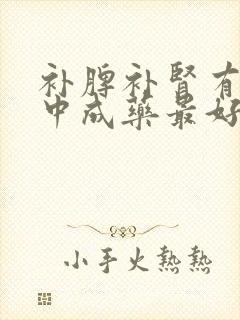 补脾补肾有
中成药最好
小手火热热